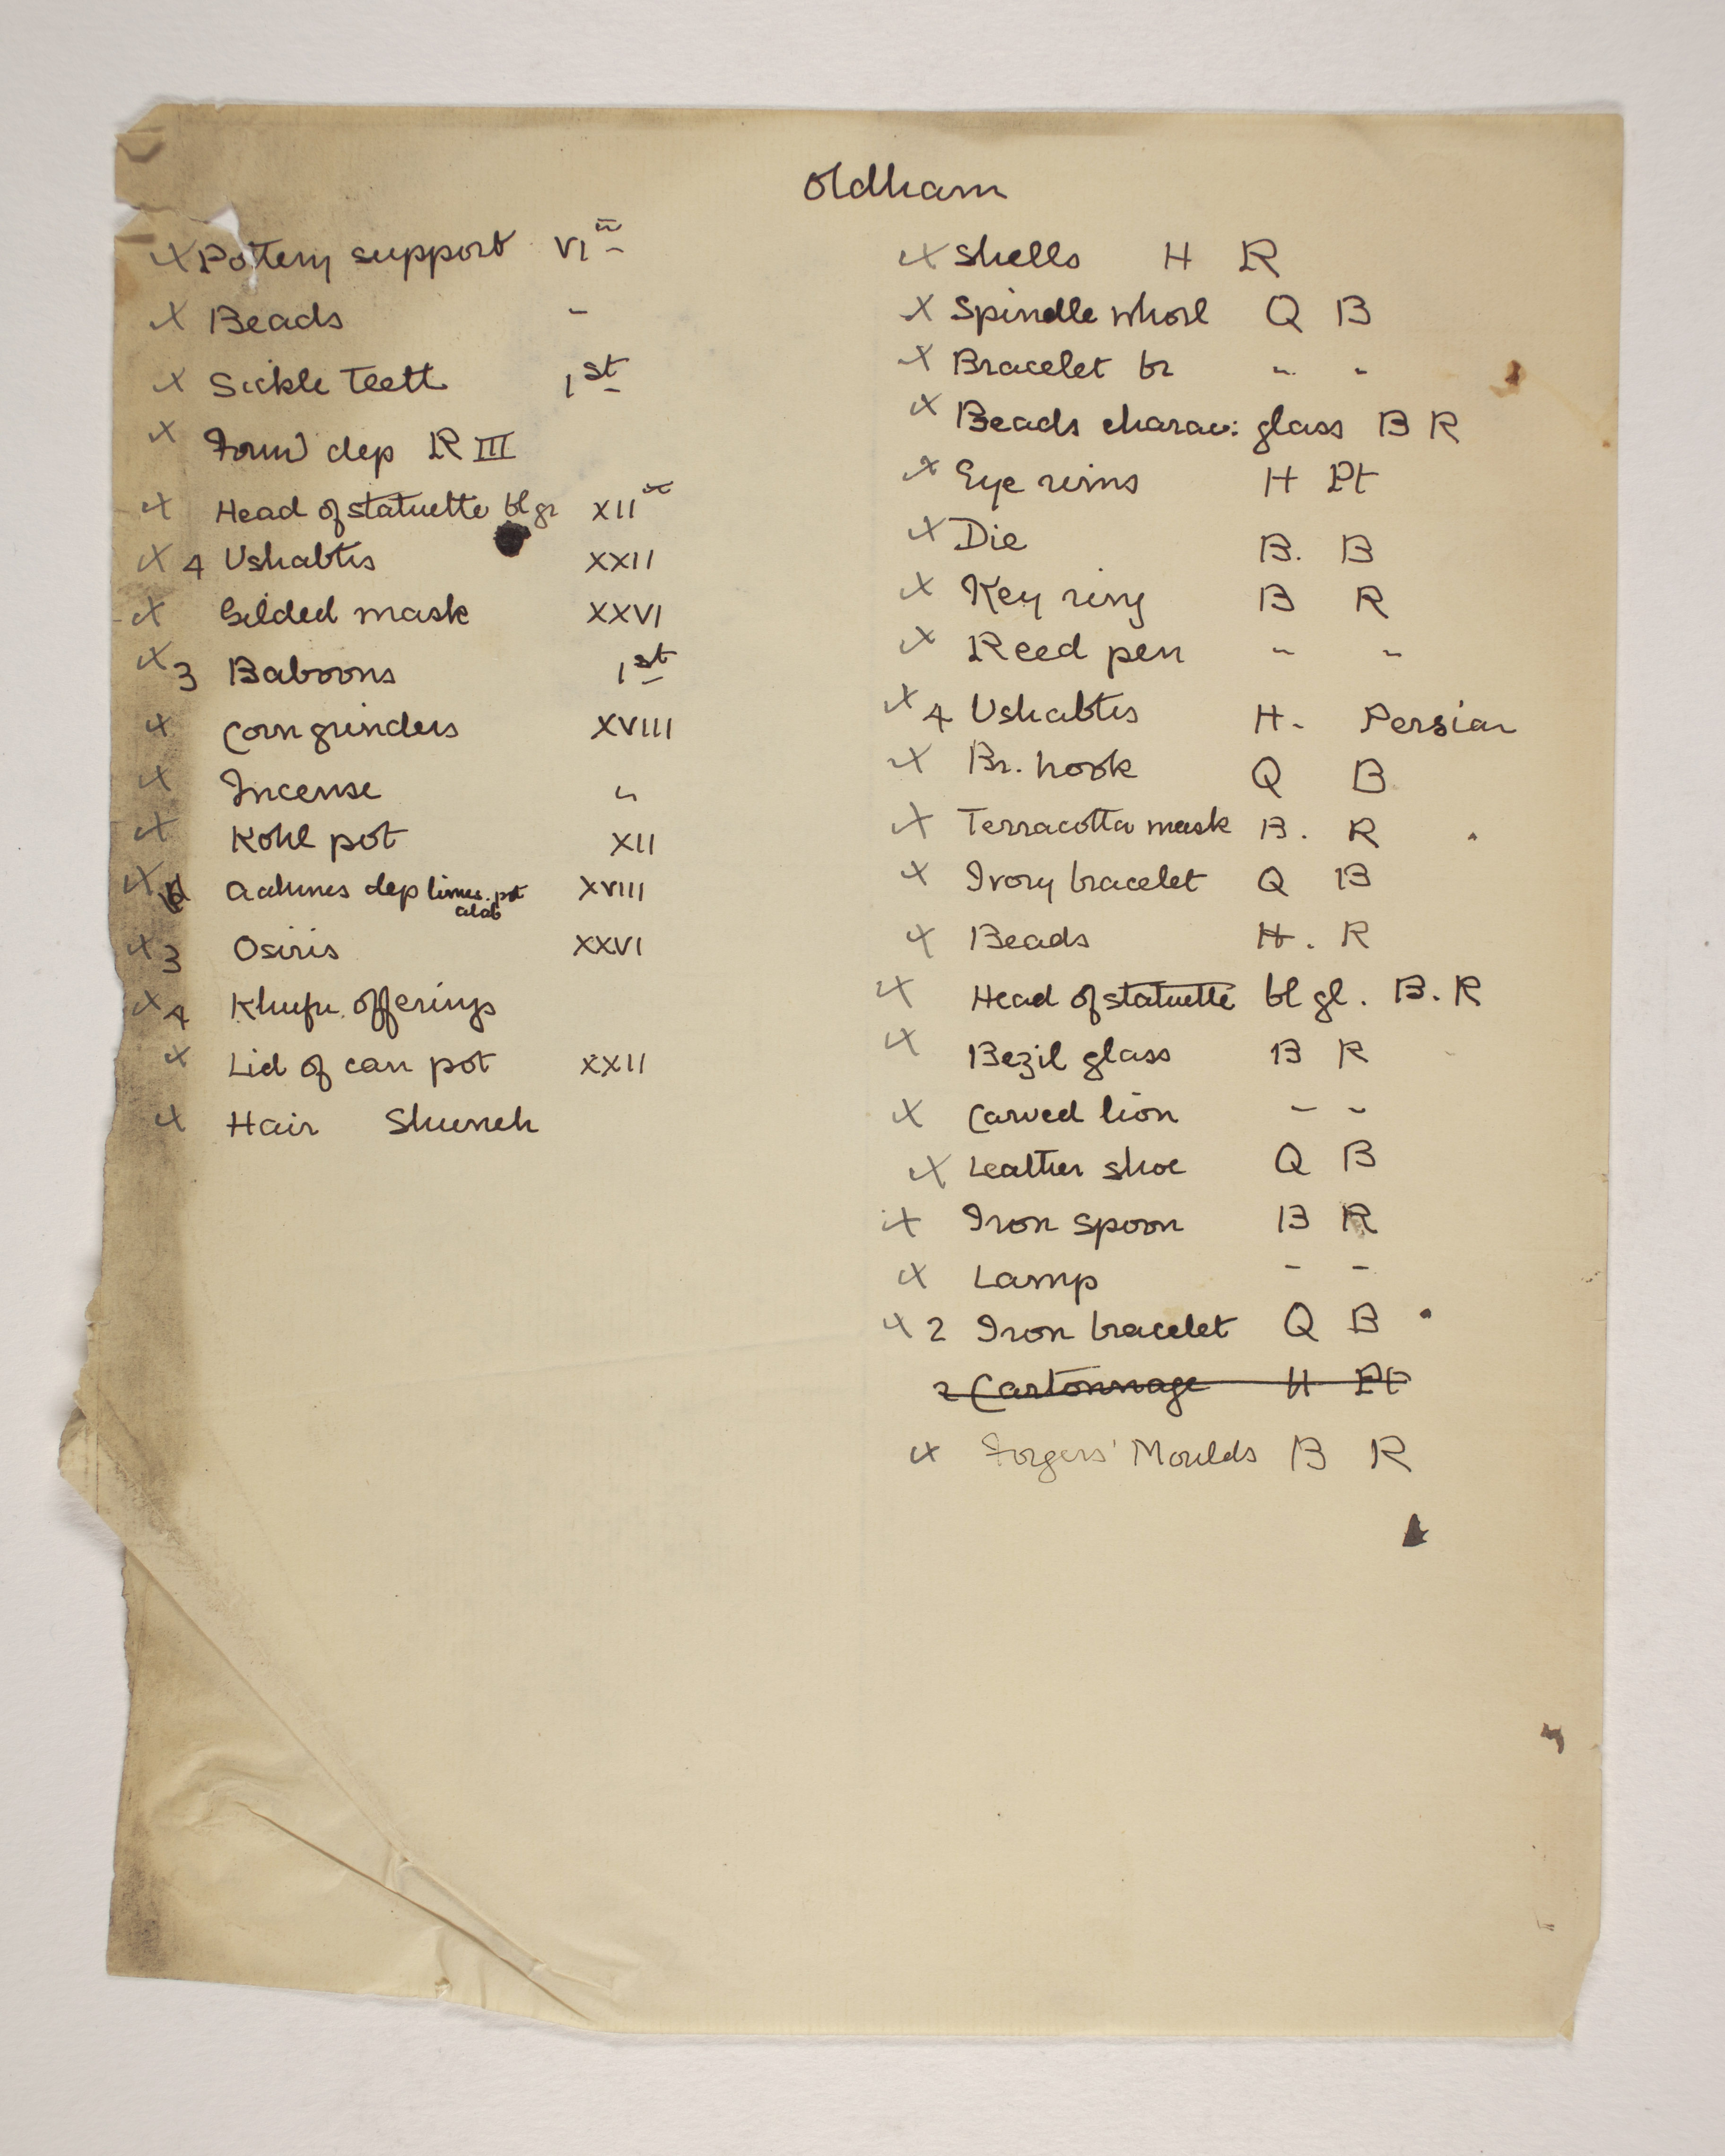 Oldham
x Pottery support VI th
x Beads "
x Sickle Teeth 1st
x Foun dep R III
x Head of statuette bl gr XII th
x 4 Ushabtis XXII
x Gilded mask XXVI
x 3 Baboons 1st
x Corn grinders XVIII
x Incense "
x Kohl pot XII
x Aahmes dep limes. pot XVIII
alab
x 3 Osiris XXVI
x 4 Khufu offerings
x Lid of can pot XXII
x Hair Shuneh
x Shells H R
x Spindle whorl Q B
x Bracelet br " "
x Beads charac: glass B R
x Eye rims H Pt
x Die B. B
x Key ring B R
x Reed pen " "
x 4 Ushabtis H. Persian
x Br. hook Q B
x Terracotta mask B. R
x Ivory bracelet Q B
x Beads H. R
x Head of statuette bl gl. B. R
x Bezil glass B R
x Carved lion " "
x Leather shoe Q B
x Iron spoon B R
x Lamp " "
x 2 Iron bracelet Q B
2 Cartonnage H Pt
x Forgers' Moulds B R